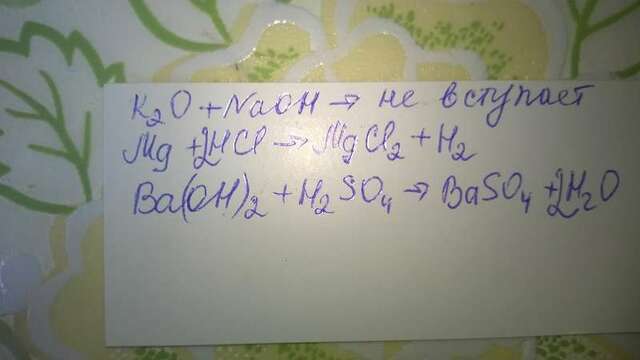 K₂O + NaOH → не вступает
Mg + 2HCl → MgCl₂ + H₂
Ba(OH)₂ + H₂SO₄ → BaSO₄ + 2H₂O